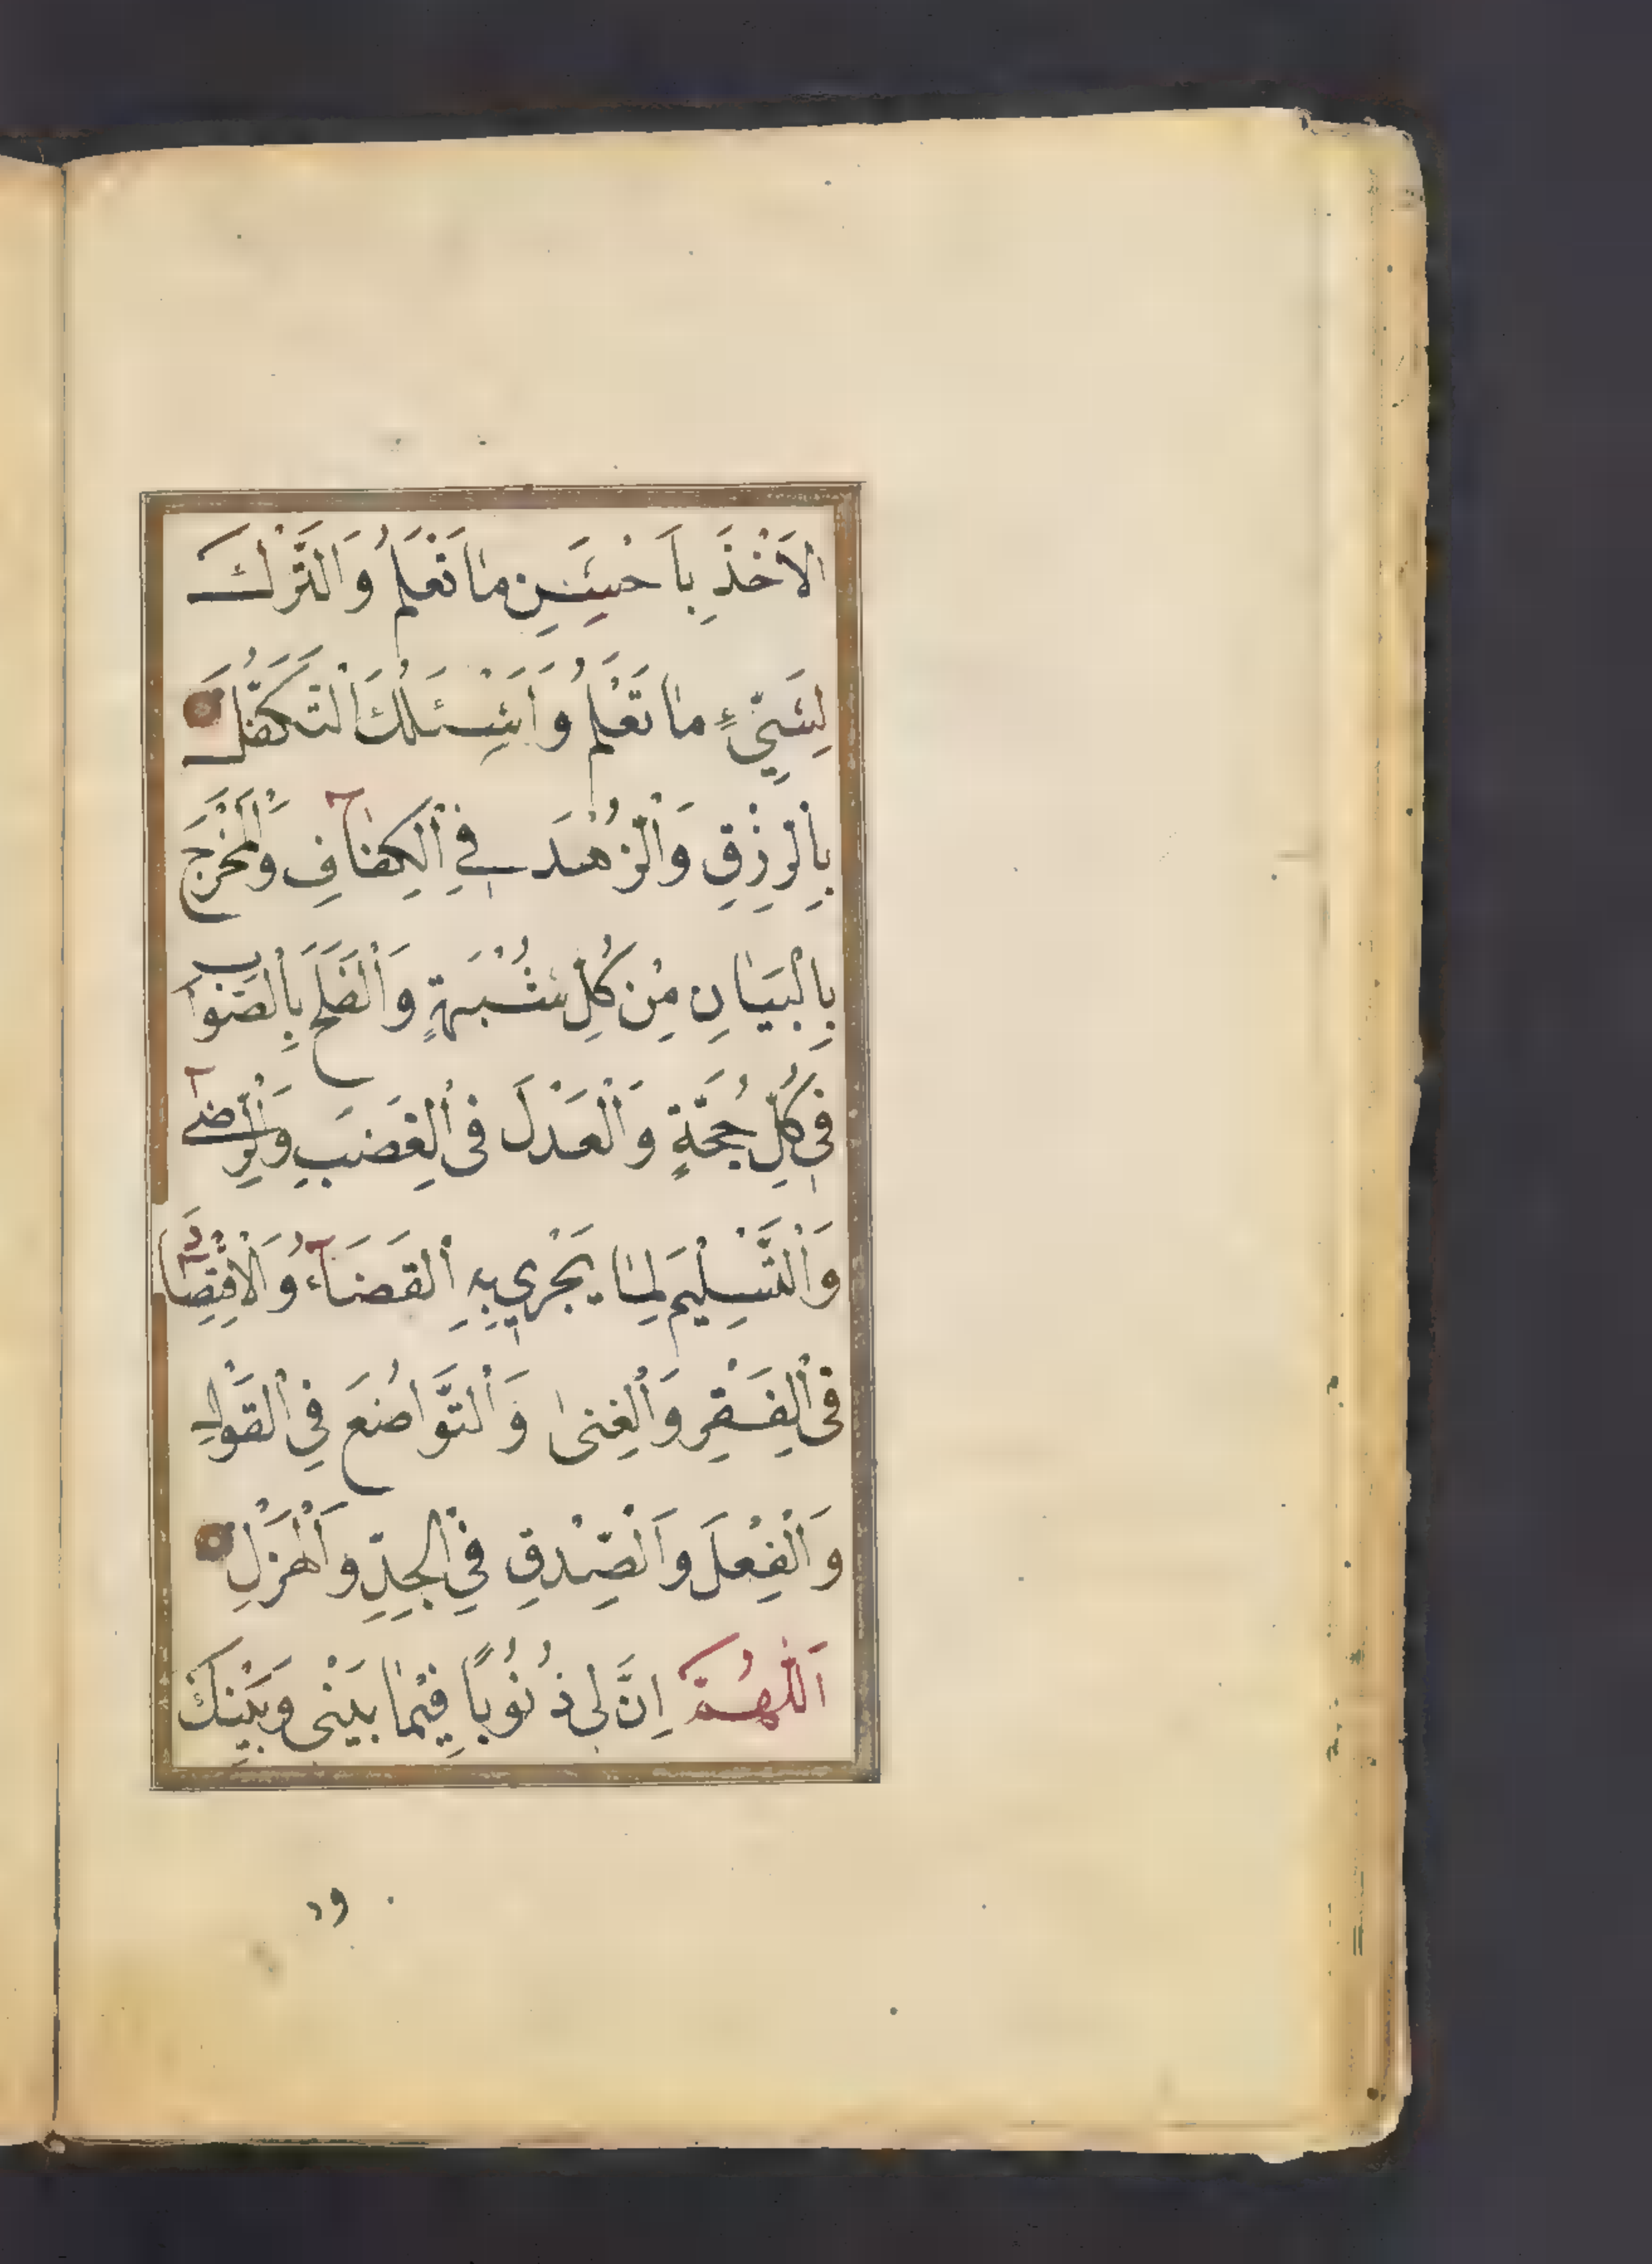 الْاَخْذَ بِاَحْسَنِ مَا تَعْلَمُ وَالتَّرْكَ
لِسَيِّيءٍ مَا تَعْلَمُ وَاَسْئَلُكَ التَّكَفُّلَ
بِالرِّزْقِ وَالزُّهْدَ فِي الْكِفَافِ وَالْمَخْرَجَ
بِالْبَيَانِ مِنْ كُلِّ شُبْهَةٍ وَالْفَلَجَ بِالصَّوَابِ
فِي كُلِّ حُجَّةٍ وَالْعَدْلَ فِي الْغَضَبِ وَالرِّضٰى
وَالتَّسْلِيْمَ لِمَا يَجْرِي بِهِ الْقَضَآءُ وَالْاِقْتِصَادَ
فِي الْفَقْرِ وَالْغِنٰى وَالتَّوَاضُعَ فِي الْقَوْلِ
وَالْفِعْلِ وَالصِّدْقِ فِي الْجِدِّ وَالْهَزْلِ
اَللّٰهُمَّ اِنَّ لِي ذُنُوْبًا فِيْمَا بَيْنِي وَبَيْنِكَ